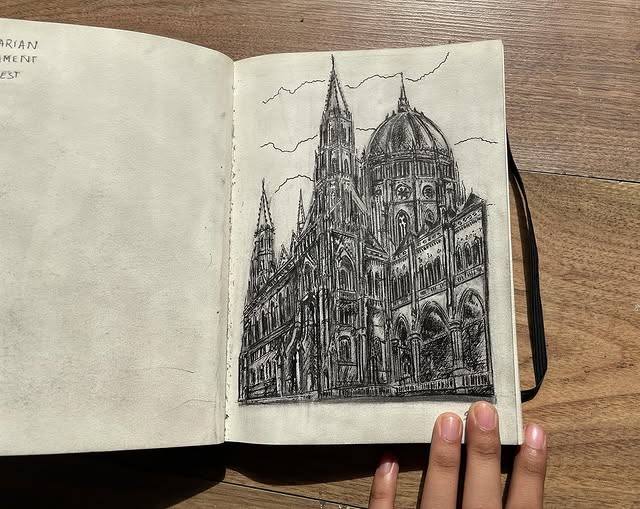 ARIAN
MENT
EST